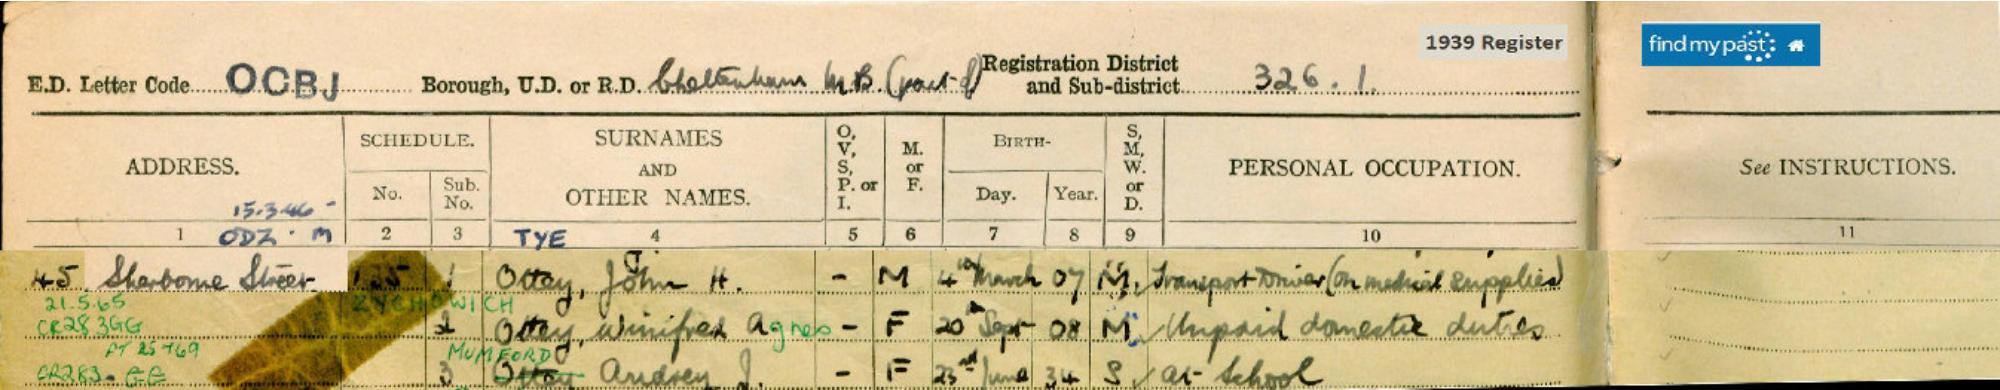 1939 Register
findmypast
E.D. Letter Code OCBJ Borough, U.D. or R.D. Cheltenham M.B. (part of) Registration District and Sub-district 326.1.
ADDRESS. SCHEDULE. No. Sub. No. SURNAMES AND OTHER NAMES. O, V, S, P. or I. M. or F. BIRTH- Day. Year. S, M, W. or D. PERSONAL OCCUPATION. See INSTRUCTIONS.
15.3.46 -
1 ODZ · M 2 3 TYE 4 5 6 7 8 9 10 11
45 Sherborne Street 125 1 Ottey, John H. - M 4th March 07 M. Transport Driver (on medical supplies)
21.5.65 ZYCHOWICH
CR283GG 2 Ottey, Winifred Agnes - F 20th Sept 08 M Unpaid domestic duties
25769 MUMFORD
CR283-GE 3 Ottey Audrey J. - F 23rd June 34 S at School